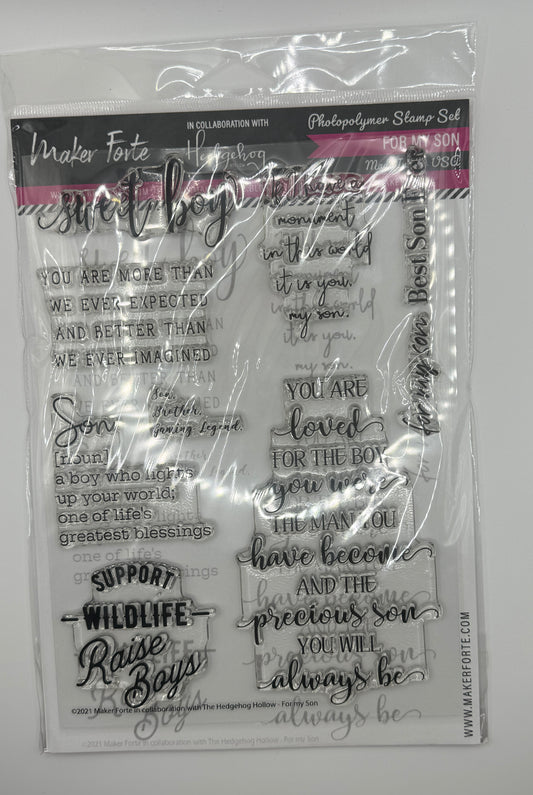 Maker Forte
IN COLLABORATION WITH
Hedgehog
Photopolymer Stamp Set
FOR MY SON
sweet boy
YOU ARE MORE THAN
WE EVER EXPECTED
AND BETTER THAN
WE EVER IMAGINED
monument
in this world
it is you,
my son.
Best Son Ever
for my son
Son
[noun]
a boy who lights
up your world;
one of life's
greatest blessings
Son.
Brother.
Gaming. Legend.
YOU ARE
loved
FOR THE BOY
you were
THE MAN YOU
have become
AND THE
precious son
YOU WILL
always be
SUPPORT
WILDLIFE
Raise
Boys
©2021 Maker Forte in collaboration with The Hedgehog Hollow - For my Son
©2021 Maker Forte in collaboration with The Hedgehog Hollow - For my Son
WWW.MAKERFORTE.COM